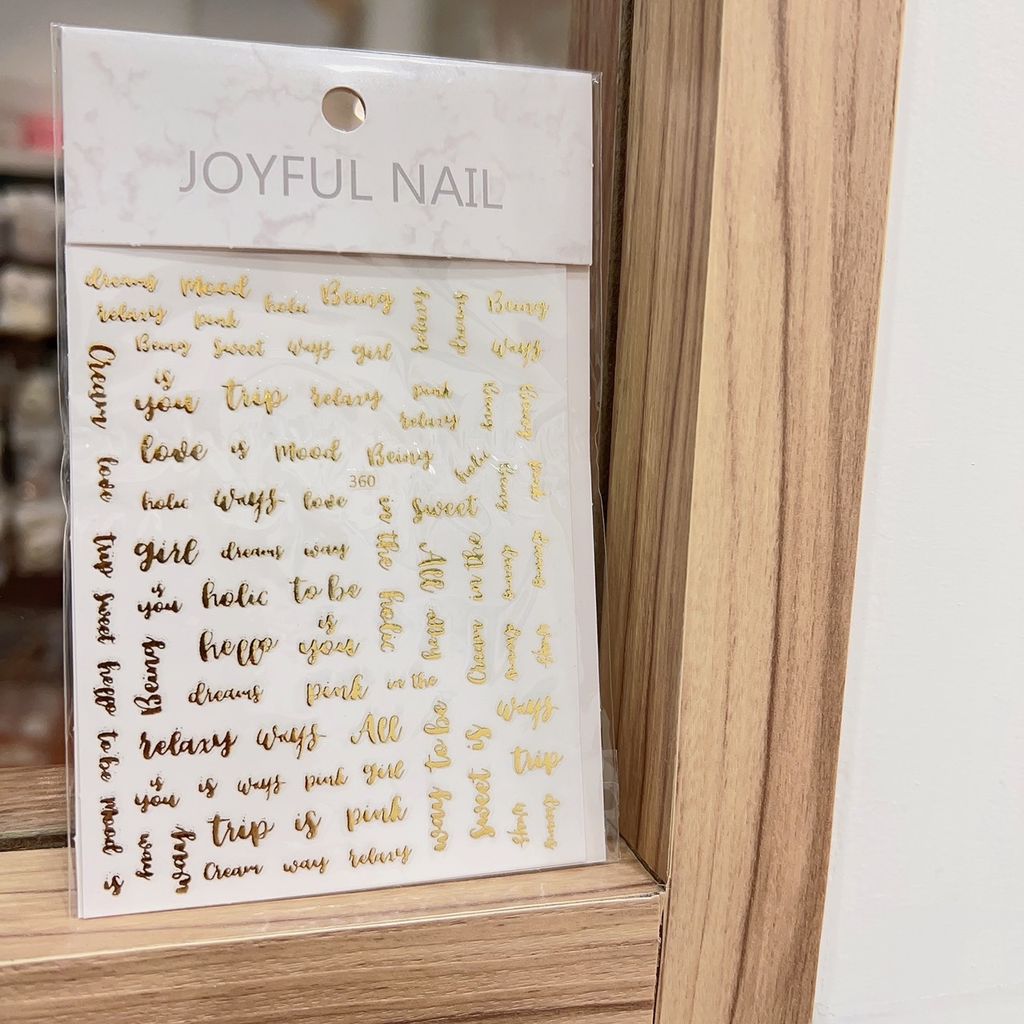 JOYFUL NAIL
dreams Mood Being
relaxy pink holic
relaxy
dreams
Being
ways
Being Sweet ways girl
Cream
is
you trip relaxy pink
relaxy
love is Mood Being
holic
360
holic ways love
in the
Sweet
love
pink
girl dreams way
All
Cream in the
dreams
trip
is
you holic to be
holic
hello
sweet
hello
is
you
Being
dreams pink in the
dreams
hello
relaxy ways All
way to be
Sweet is
ways
trip
to be
is
you is ways pink girl
Mood is
trip is pink
way
Cream way relaxy